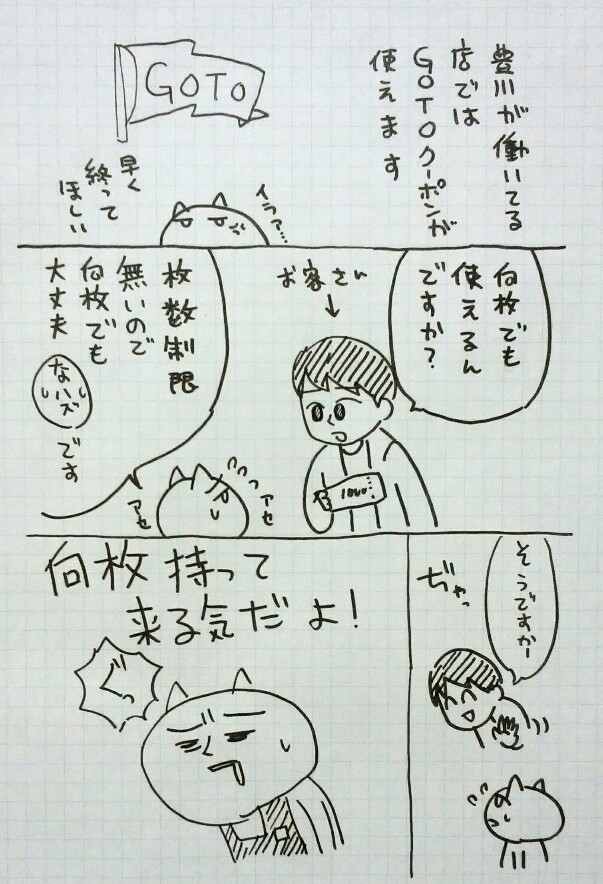 豊川が働いてる
店では
GOTOクーポンが
使えます
GOTO
イラァ…
早く
終って
ほしい
何枚でも
使えるん
ですか?
お客さん
↓
1000
枚数制限
無いので
何枚でも
大丈夫
ないハズ
です
アセ
アセ
そうですかー
ぢゃっ
何枚持って
来る気だよ!
ぐっ